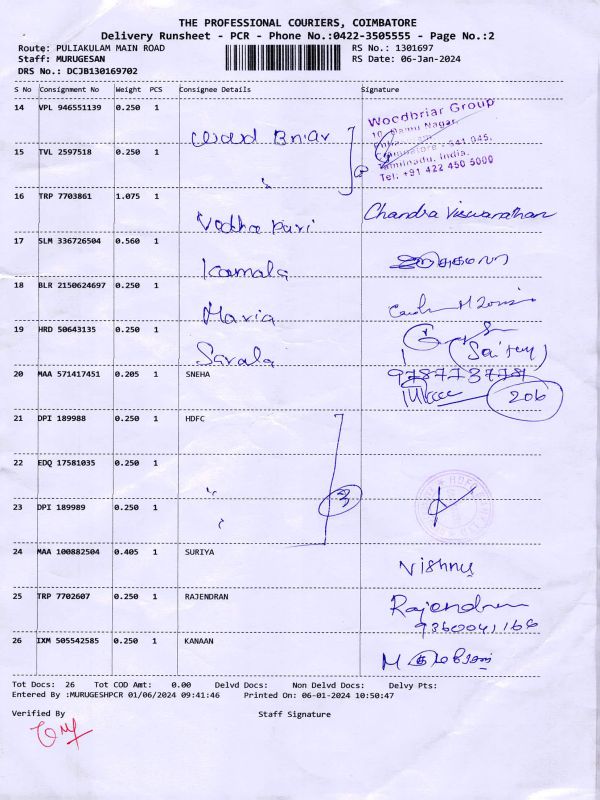 THE PROFESSIONAL COURIERS, COIMBATORE
Delivery Runsheet - PCR - Phone No.:0422-3505555 - Page No.:2
Route: PULIAKULAM MAIN ROAD RS No.: 1301697
Staff: MURUGESAN RS Date: 06-Jan-2024
DRS No.: DCJB130169702
S No Consignment No Weight PCS Consignee Details Signature
14 VPL 946551139 0.250 1
Wood Briar
Woodbriar Group
Nagar,
641 045,
Tamilnadu, India.
Tel: +91 422 450 5000
15 TVL 2597518 0.250 1 "
2
16 TRP 7703861 1.075 1
Vedha puri Chandra Viswanathan
17 SLM 336726504 0.560 1
Kamala
18 BLR 2150624697 0.250 1
Maria
19 HRD 50643135 0.250 1
Sarala
20 MAA 571417451 0.205 1 SNEHA 9787737781
206
21 DPI 189988 0.250 1 HDFC
22 EDQ 17581035 0.250 1
"
3
23 DPI 189989 0.250 1
"
24 MAA 100882504 0.405 1 SURIYA
Vishnu
25 TRP 7702607 0.250 1 RAJENDRAN
Rajendran
9360041166
26 IXM 505542585 0.250 1 KANAAN
Tot Docs: 26 Tot COD Amt: 0.00 Delvd Docs: Non Delvd Docs: Delvy Pts:
Entered By :MURUGESHPCR 01/06/2024 09:41:46 Printed On: 06-01-2024 10:50:47
Verified By Staff Signature